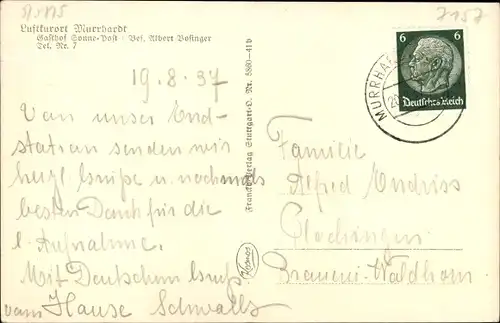 7157
Luftkurort Murrhardt
Gasthof Sonne-Post · Bes. Albert Bofinger
Tel. Nr. 7
19.8.37
Von unser End-
station senden wir
herzl Grüße u. nochmals
besten Dank für die
l. Aufnahme.
Mit Deutschem Gruß
vom Hause Schwalls
Franckh-Verlag Stuttgart-O. Nr. 5860-41b
Kosmos
6 6
Deutsches Reich
MURRHA
20
Familie
Alfred Endriss
Plochingen
Brauerei-Waldhorn